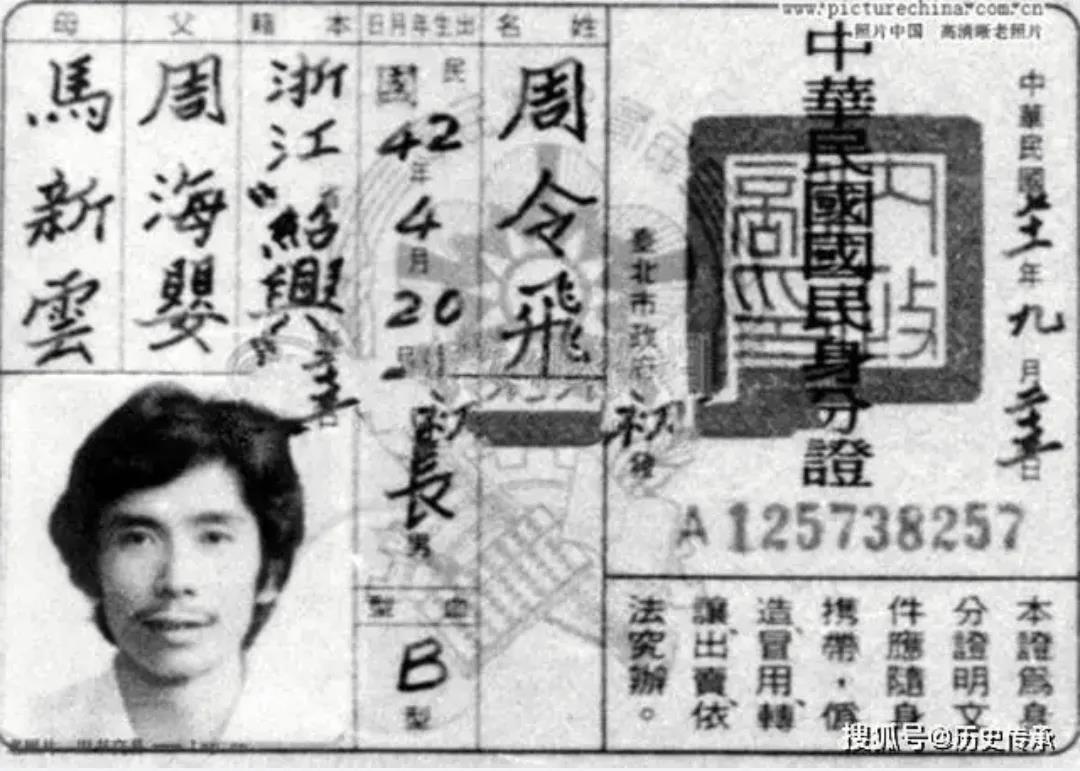 www.picturechina.com.cn
照片中国 高清晰老照片
中華民國七十一年九月二十五日
中華民國國民身分證
臺北市政府初發
A125738257
本證為身
分證明文
件應隨身
攜帶，偽
造、冒用、轉
讓、出賣、依
法究辦。
姓名
周令飛
出生年月日
民國42年4月20日
初
長男
血型
B型
本籍
浙江紹興
父
周海嬰
母
馬新雲
搜狐号@历史传承